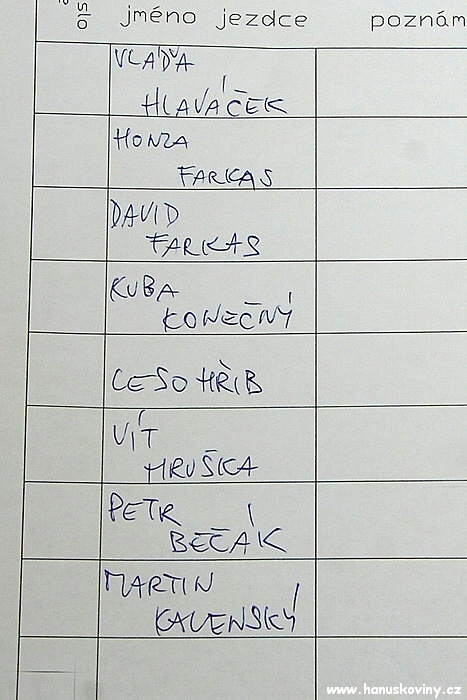 slo jméno jezdce poznám
VLAĎA
HLAVÁČEK
HONZA
FARKAS
DAVID
FARKAS
KUBA
KONEČNÝ
LESOHŘIB
VÍT
HRUŠKA
PETR
BEČÁK
MARTIN
KALENSKÝ
www.hanuskoviny.cz